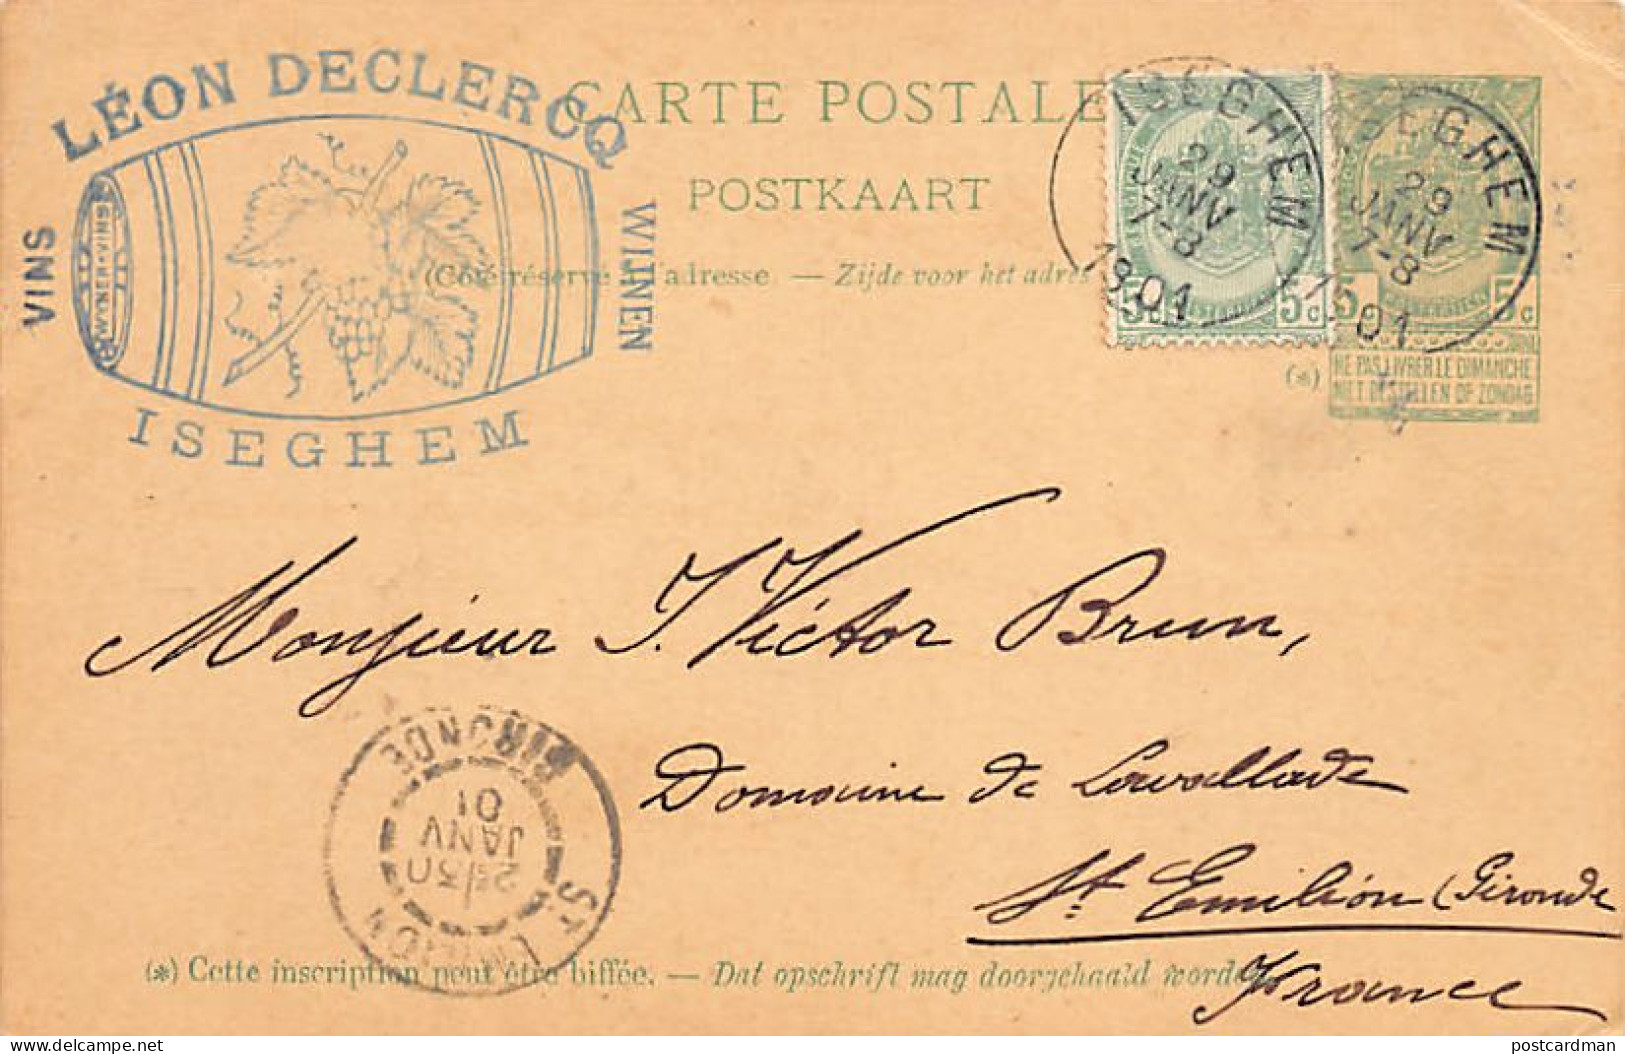 LÉON DECLERCQ
VINS
WIJNEN
WIJNEN·VINS
ISEGHEM
CARTE POSTALE
POSTKAART
(Côté réservé à l'adresse. — Zijde voor het adres
ISEGHEM
29
JANV
7-8
1901
ISEGHEM
29
JANV
7-8
1901
5c 5c
5 5c
(*)
NE PAS LIVRER LE DIMANCHE
NIET BESTELLEN OP ZONDAG
Monsieur J. Victor Brun,
Domaine de Lavallade
St Emilion (Gironde
France
GIRONDE
ST EMILION
30
JANV
01
(*) Cette inscription peut être biffée. — Dat opschrift mag doorgehaald worden
www.delcampe.net
postcardman